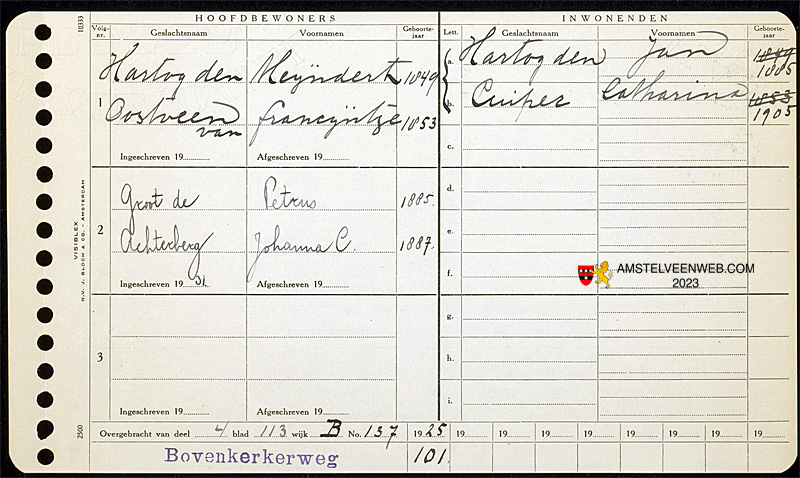 HOOFDBEWONERS INWONENDEN
10333
Volg-nr. Geslachtsnaam Voornamen Geboorte-jaar Lett. Geslachtsnaam Voornamen Geboorte-jaar
1
Hartog den Meijndert 1849
Oostveen van Francijntje 1853
Ingeschreven 19 Afgeschreven 19
2
Groot de Petrus 1885.
Achterberg Johanna C. 1887.
Ingeschreven 1931. Afgeschreven 19
3
Ingeschreven 19 Afgeschreven 19
a. Hartog den Jan 1849 1885
b. Cuiper Catharina 1853 1905
c.
d.
e.
f.
g.
h.
i.
AMSTELVEENWEB.COM
2023
VISIBLEX
N.V. J. BLOCH & CO. - AMSTERDAM
2500
Overgebracht van deel 4 blad 113 wijk B No. 137 1925 19 19 19 19 19 19 19 19
Bovenkerkerweg 101.